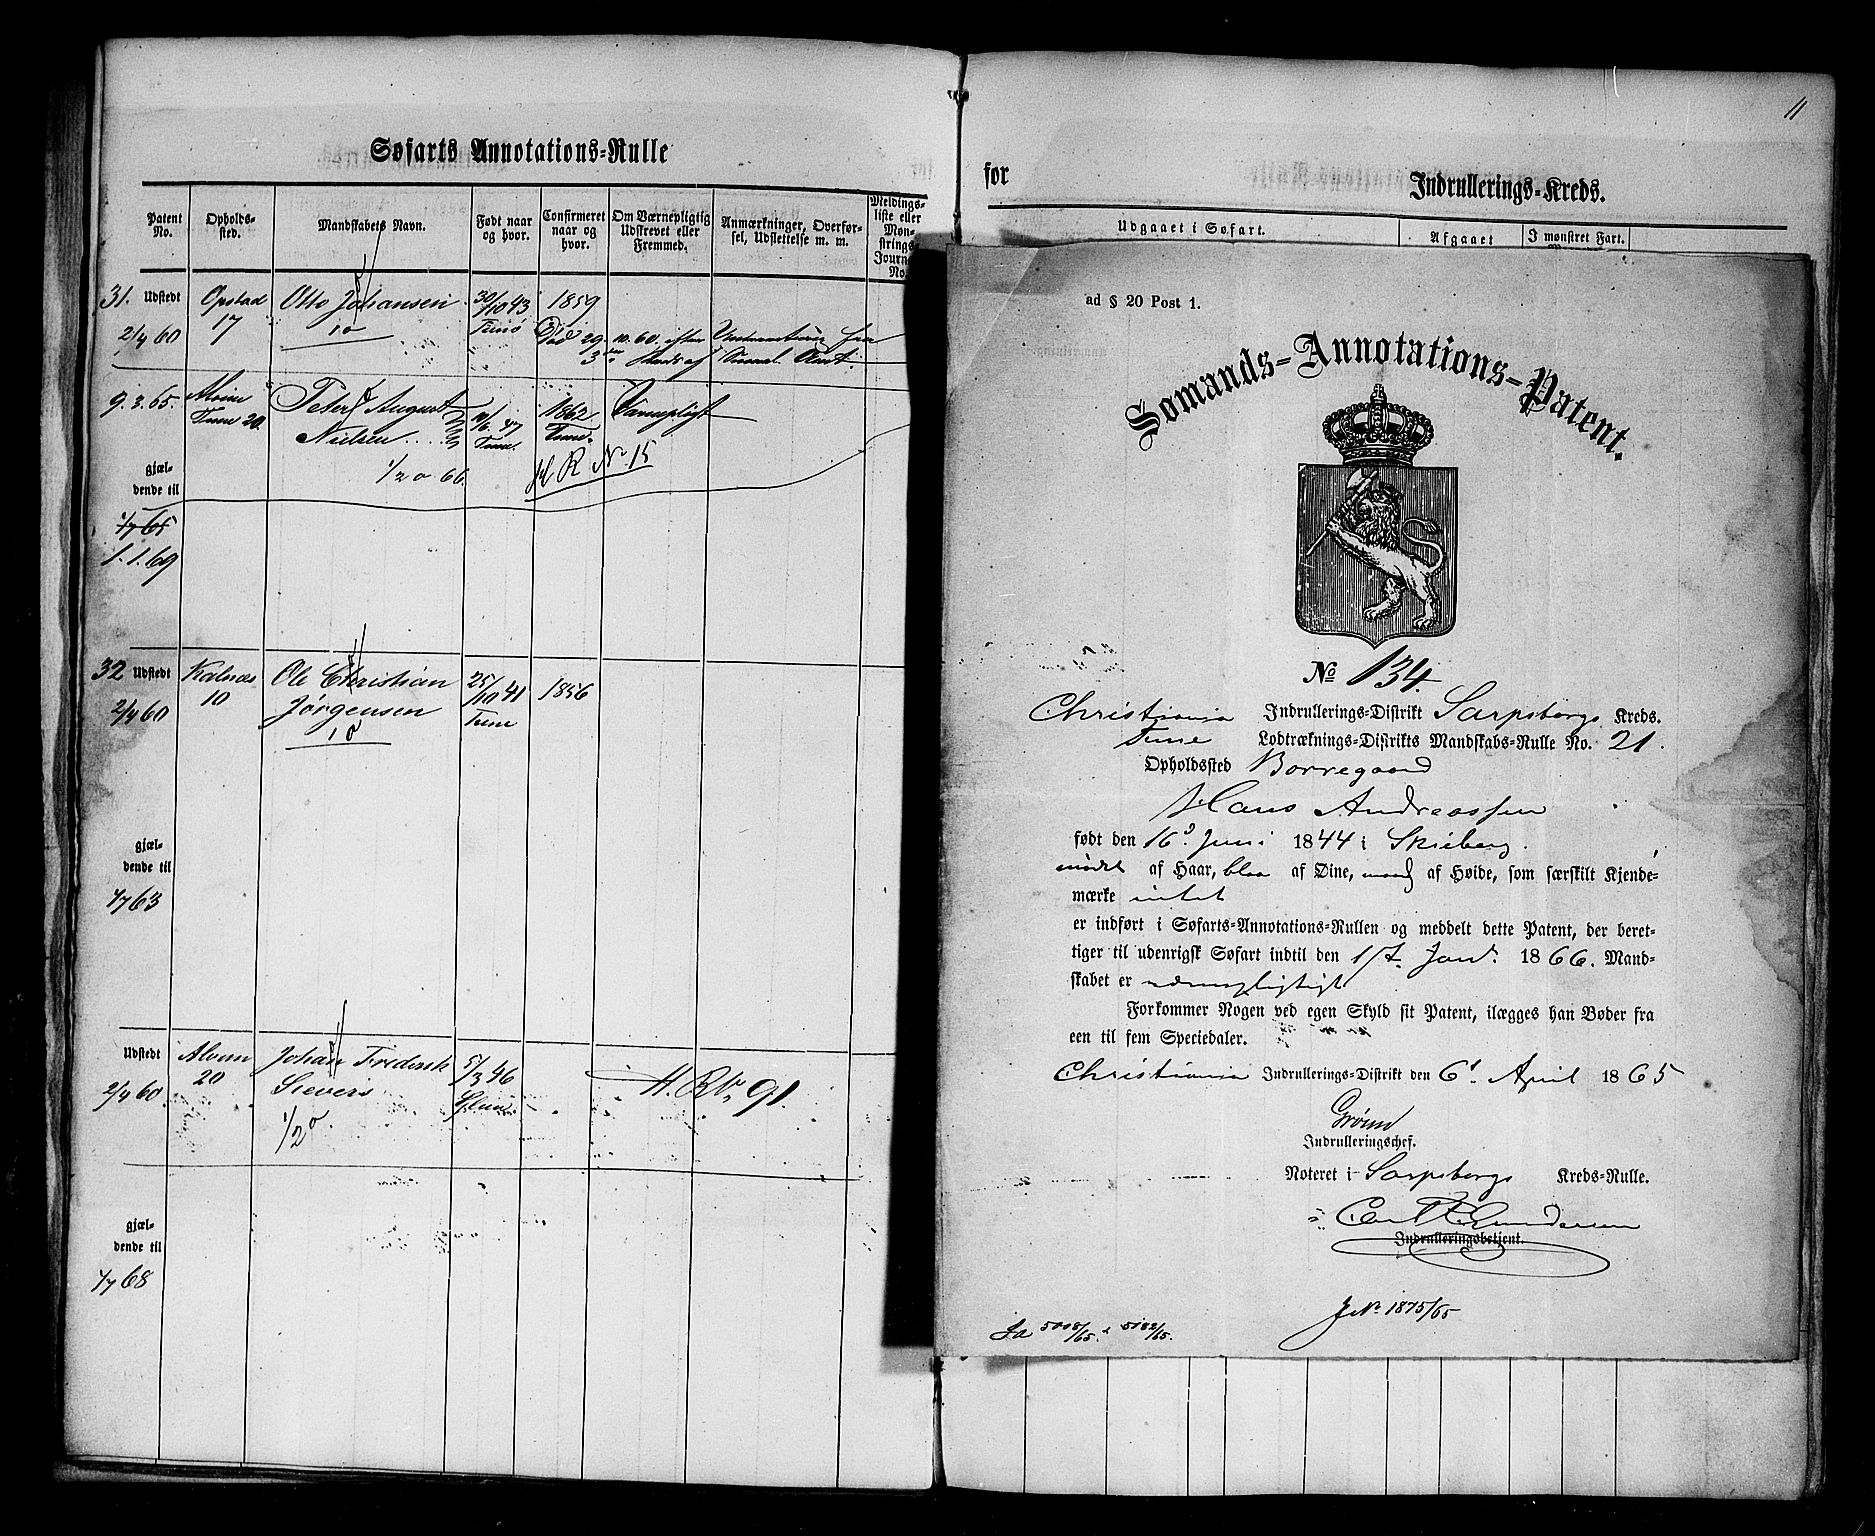 Søfarts Annotations-Rulle
Patent No.
Opholds-sted.
Mandskabets Navn.
Født naar og hvor.
Confirmeret naar og hvor.
Om Værnepligtig Udskrevet eller Fremmed.
Anmærkninger, Overførsel, Udslettelse m. m.
Meldings-liste eller Mønstrings-Journal No.
31. Udstedt Opstad Otto Johansen 30/10 43 1859
2/4 60 17 10 Tunø Død 29. 10. 60. efter
3
9. 3. 65. Alvim Peter August 10/6 47 1862 Værnepligt
Tune 20. Nielsen Tune. Tune.
1/20 66. H R No 15
gjæl-
dende til
1/7 65
1. 1. 69
32 Udstedt Kalnæs Ole Christian 25/10 41 1856
2/4 60 10 Jørgensen Tune
10
gjæl-
dende til
1/7 63
Udstedt Alvim Johan Frederik 5/3 46 H. R. No 91.
2/4 60. 20 Sievers Glem.
1/20.
gjæl-
dende til
1/7 68
11
for
Indrullerings-Kreds.
Udgaaet i Søfart.
Afgaaet
I mønstret Fart.
ad § 20 Post 1.
Sømands-Annotations-Patent.
No 134.
Christiania Indrullerings-Distrikt Sarpsborgs Kreds.
Tune Lodtræknings-Distrikts Mandskabs-Rulle No. 21.
Opholdssted Borregaard
Hans Andreassen
født den 16d Juni 1844 i Skieberg.
mørkt af Haar, blaa af Øine, maadl af Høide, som særskilt Kjende-
mærke intet
er indført i Søfarts-Annotations-Rullen og meddelt dette Patent, der beret-
tiger til udenrigsk Søfart indtil den 1st. Janr. 1866. Mand-
skabet er værnepligtigt
Forkommer Nogen ved egen Skyld sit Patent, ilægges han Bøder fra
een til fem Speciedaler.
Christiania Indrullerings-Distrikt den 6t April 1865
Grønn
Indrulleringschef.
Noteret i Sarpsborgs Kreds-Rulle.
Carl Gundersen
Indrulleringsbetjent.
J No 1875/65